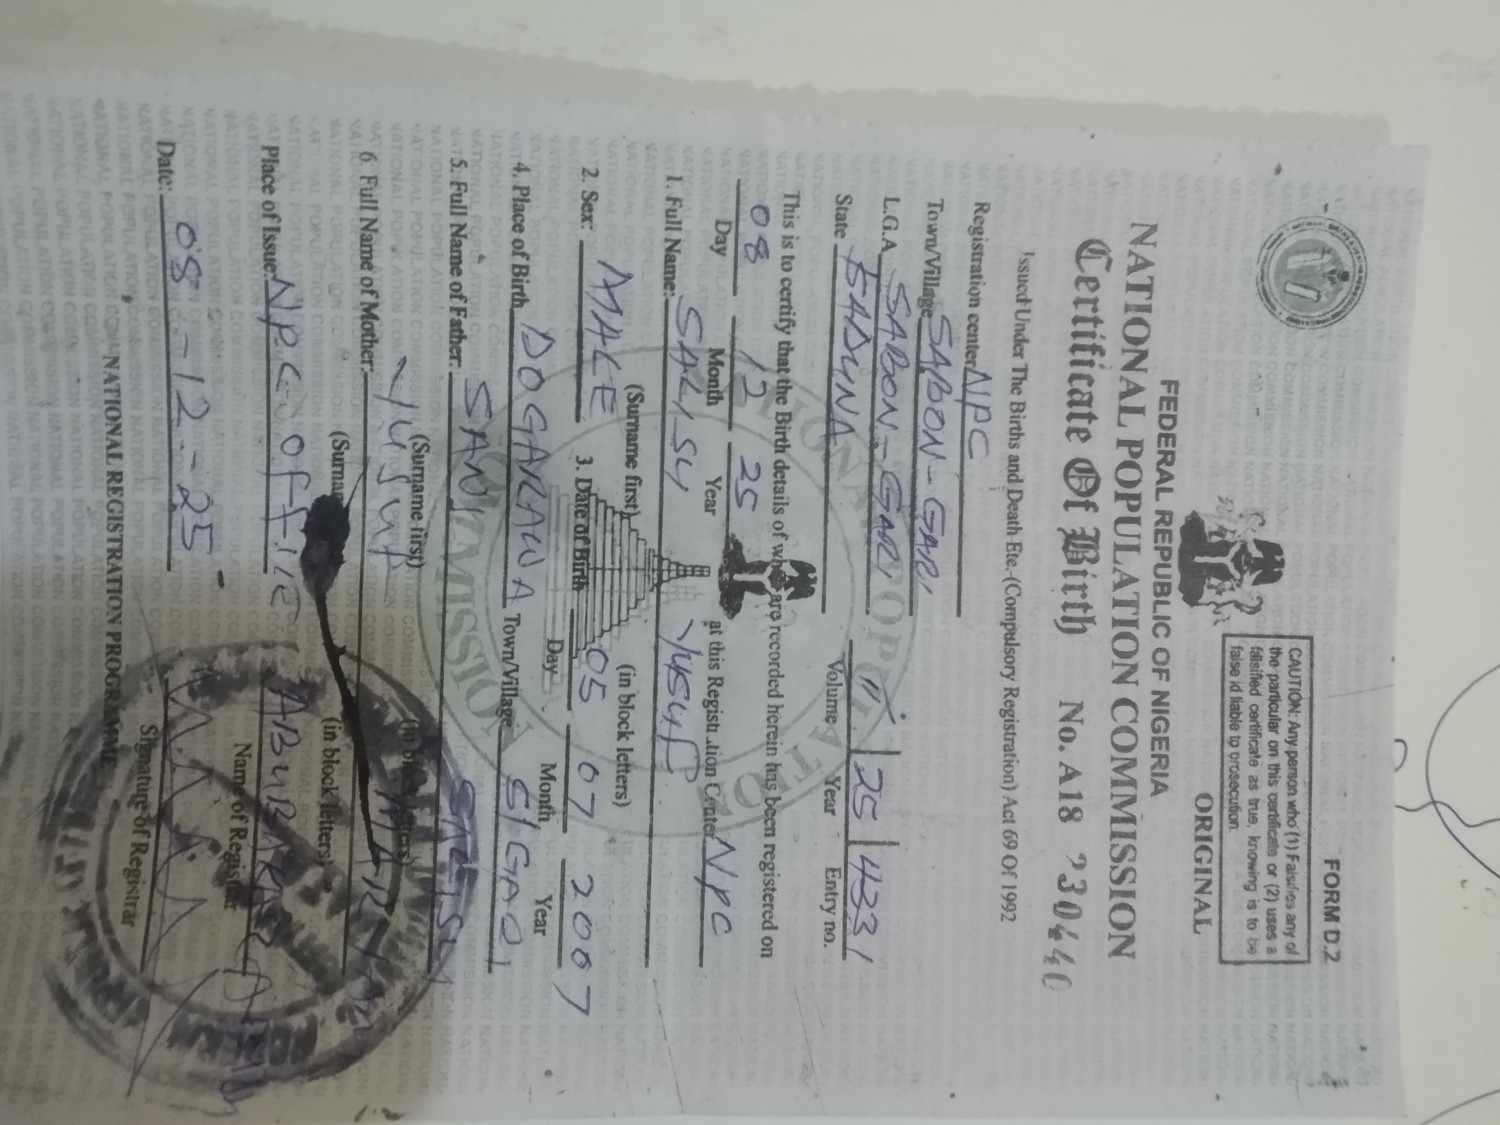 FORM D.2
CAUTION: Any person who (1) Falsifies any of
the particular on this certificate or (2) uses a
falsified certificate as true, knowing is to be
false id liable to prosecution.
ORIGINAL
FEDERAL REPUBLIC OF NIGERIA
NATIONAL POPULATION COMMISSION
Certificate Of Birth No. A18 230440
Issued Under The Births and Death Etc. (Compulsory Registration) Act 69 Of 1992
Registration center NPC
Town/Village SABON-GARI
L.G.A SABON-GARI 11 25 4331
State KADUNA Volume Year Entry no.
This is to certify that the Birth details of who are recorded herein has been registered on
08 12 25 at this Registration Center NPC
Day Month Year
1. Full Name: SALISU YUSUF
(Surname first) (in block letters)
2. Sex: MALE 3. Date of Birth 05 07 2007
Day Month Year
4. Place of Birth DOGARAWA Town/Village S/GARI
5. Full Name of Father: SANI SALISU
(Surname first) (in block letters)
6 Full Name of Mother: YUSUF
(in block letters)
Place of Issue: NPC OFFICE ABUBAKAR
Name of Registrar
Date: 08-12-25
Signature of Registrar
NATIONAL REGISTRATION PROGRAMME